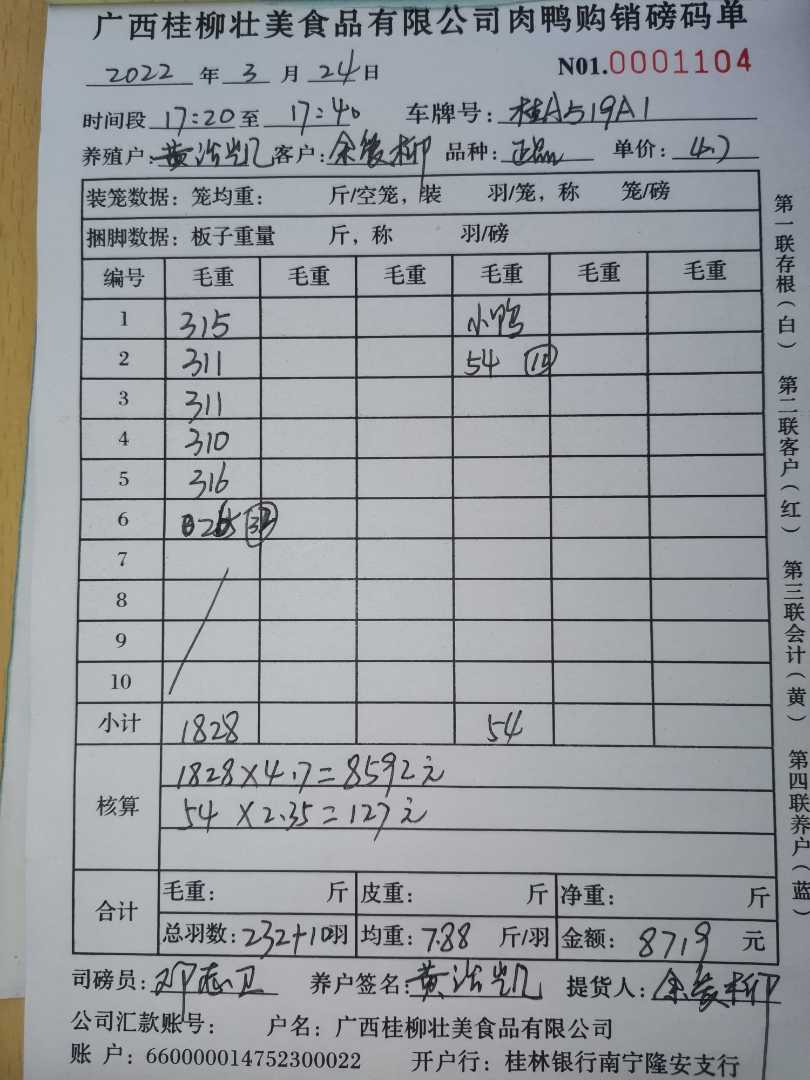 广西桂柳壮美食品有限公司肉鸭购销磅码单
2022 年 3 月 24 日 N01.0001104
时间段 17:20 至 17:40 车牌号: 桂A519A1
养殖户: 黄浩凯 客户: 余爱柳 品种: 单价: 4.7
装笼数据: 笼均重: 斤/空笼, 装 羽/笼, 称 笼/磅
捆脚数据: 板子重量 斤, 称 羽/磅
编号 毛重 毛重 毛重 毛重 毛重 毛重
1 315 小鸭
2 311 54 10
3 311
4 310
5 316
6 32
7
8
9
10
小计 1828 54
核算 1828×4.7=8592元
54×2.35=127元
合计 毛重: 斤 皮重: 斤 净重: 斤
总羽数: 232+10羽 均重: 7.88 斤/羽 金额: 8719 元
司磅员: 邓志卫 养户签名: 黄浩凯 提货人: 余爱柳
公司汇款账号: 户名: 广西桂柳壮美食品有限公司
账 户: 660000014752300022 开户行: 桂林银行南宁隆安支行
第一联存根(白) 第二联客户(红) 第三联会计(黄) 第四联养户(蓝)